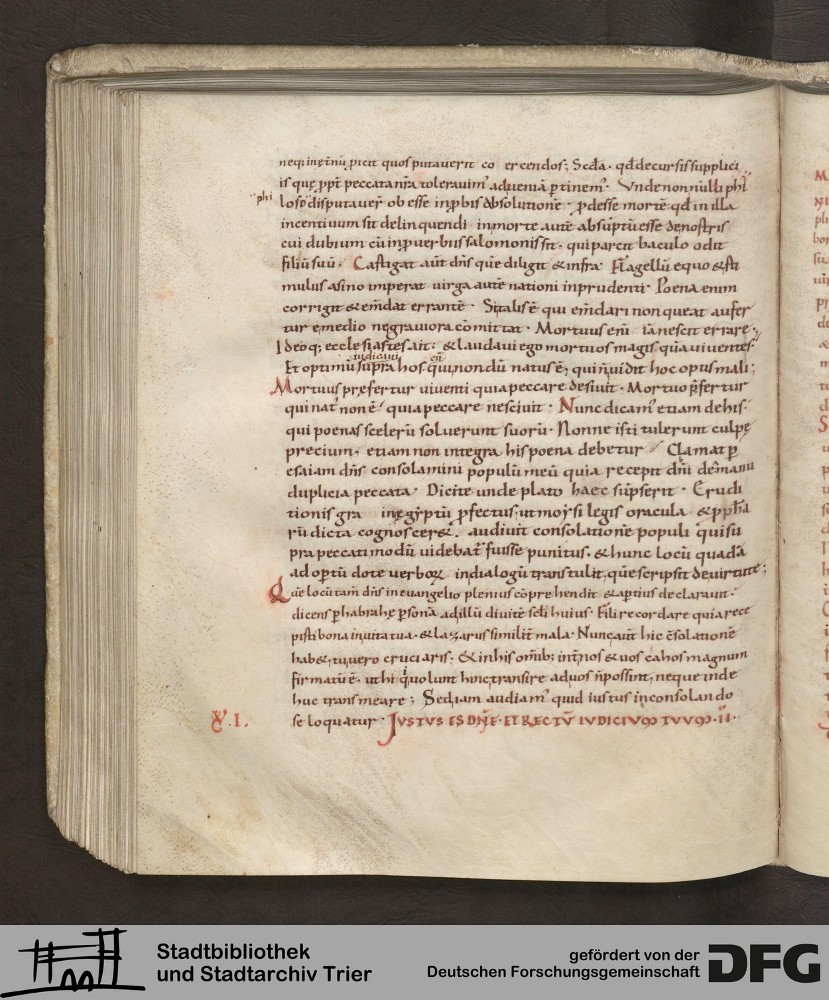 quos putaverit co ercendos; Sed ea. qd decursis supplici
is quę ppt peccata nr̄a toleravim' ad veniā ptinem'. Unde non nulli phi
losophi disputaver ob esse inpbis absolutionē. pdesse mortē qd in illa
incentivum sit delinquendi in morte autē absūptū esse de nostris
cui dubium cū in pverbiis salomonis sit. qui parcit baculo odit
filiū suū. Castigat aūt dn̄s quē diligit & infra. Flagellū equo & sti
mulus asino imperat virga autē nationi inprudenti. Poena enim
corrigit & em̄dat errantē. Si talis ē qui em̄dari non queat aufer
tur e medio ne graviora cōmittat. Mortuus enī iā nescit errare.
Ideoq; ecclesiastes ait; & laudavi ego mortuos magis quā viventes.
iudicavi eū
Et optimū supra hos qui nondū natus ē; qui n̄ vidit hoc opus mali;
Mortuus prefertur viventi quia peccare desivit. Mortuo p̄fertur
qui nat' non ē quia peccare nescivit. Nunc dicam' etiam de his.
qui poenas scelerū solverunt suorū. Nonne isti tulerunt culpę
precium. etiam non integra his poena debetur Clamat p
esaiam dn̄s consolamini populū meū quia recepit dn̄i de manu
duplicia peccata. Dicite unde plato haec sūpserit. Erudi
tionis gra in ęgyptū pfectus. ut moysi legis oracula & ppha
rū dicta cognosceret. audivit consolationē populi qui su
pra peccati modū videbat' fuisse punitus. & hunc locū quadā
adoptū dote verboꝝ in dialogū transtulit, quē scripsit de virtute;
Quē locū tam dn̄s in evangelio plenius cōprehendit & aptius declaravit.
dicens p habrahę psonā ad illū divitē scli huius. Fili recordare quia rece
pisti bona in vita tua. & lazarus similit mala. Nunc aūt hic c̄solationē
hab&, tu vero cruciaris; Et in his om̄ib; int̄ nos & vos cahos magnum
firmatū ē. ut hi qui volunt hinc transire ad vos n̄ possint, neque inde
huc transmeare; Sed iam audiam' quid iustus in consolando
XV.I. se loquatur. JUSTUS ES DN̄E. ET RECTŪ IUDICIUM TUUM. II.
Stadtbibliothek
und Stadtarchiv Trier
gefördert von der
Deutschen Forschungsgemeinschaft
DFG